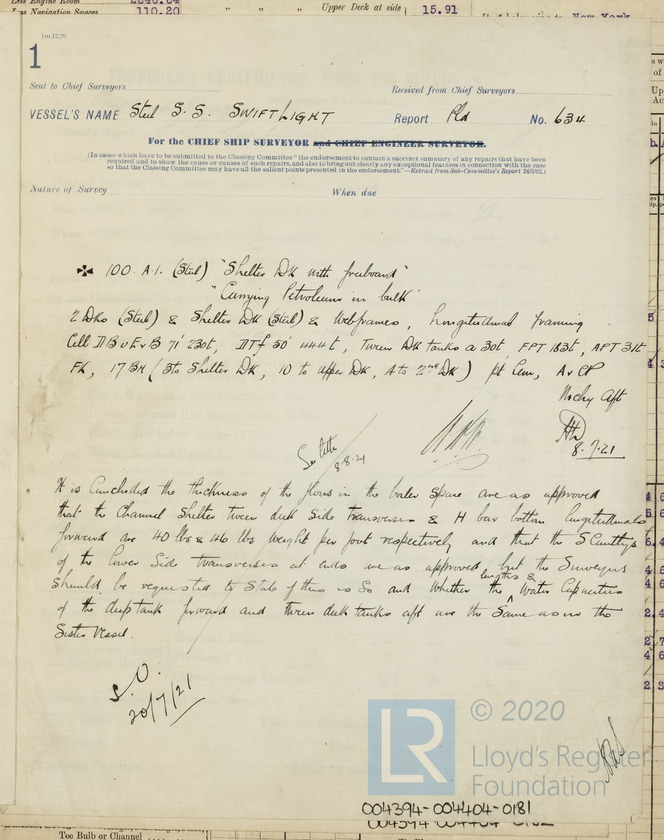 Less Engine Room
Less Navigation Spaces 110.20 " " " Upper Deck at side 15.91 New York
1m,12,20.
1
Sent to Chief Surveyors
Received from Chief Surveyors
VESSEL'S NAME Steel S.S. SWIFTLIGHT Report Pld No. 634
For the CHIEF SHIP SURVEYOR and CHIEF ENGINEER SURVEYOR.
(In cases which have to be submitted to the Classing Committee "the endorsement to contain a succinct summary of any repairs that have been
required and to show the cause or causes of such repairs, and also to bring out clearly any exceptional features in connection with the case
so that the Classing Committee may have all the salient points presented in the endorsement."—Extract from Sub-Committee's Report 24/5/02.)
Nature of Survey
When due
✠ 100 A.1. (Steel) "Shelter Dk with freeboard"
"Carrying Petroleum in bulk"
2 Dks (Steel) & Shelter Dk (Steel) & Webframes, Longitudinal framing
Cell DB u E & B 71' 230t, DTf 30' 444t, Tween Dk tanks a 30t, FPT 183t, APT 31t
FK, 17 BH (3 to Shelter Dk, 10 to upper Dk, 4 to 2nd Dk) pt Cem, A & CP
Mchy Aft
8.7.21
See letter
8-8-21
It is Concluded the thickness of the floors in the boiler space are as approved
that the Channel Shelter tween deck Side Transverses & H bar bottom longitudinals
forward are 40 lbs & 46 lbs weight per foot respectively and that the Scantlings
of the lower Side transverses at ends are as approved, but the Surveyors
should be requested to State if this is So and whether the lengths & Water Capacities
of the deep tank forward and tween deck tanks aft are the Same as in the
Sister Vessel.
S.O.
20/7/21
LR
© 2020
Lloyd's Register
Foundation
004394-004404-0181
Tee Bulb or Channel